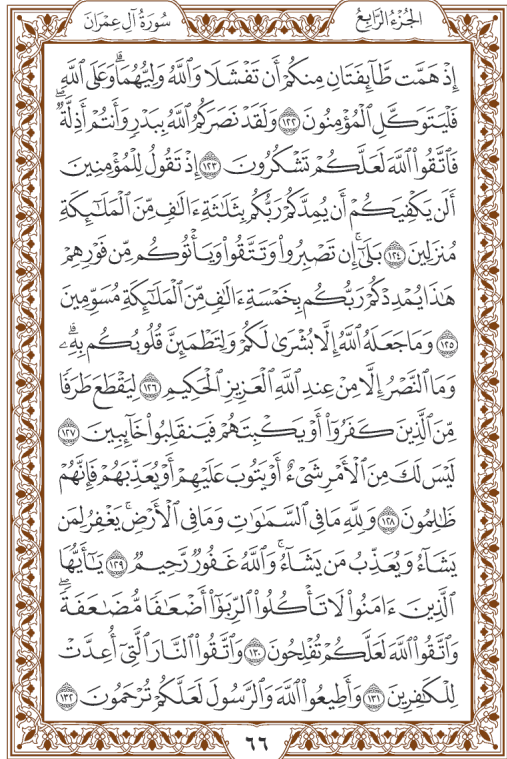 الجزء الرابع
سورة آل عمران
إِذْ هَمَّت طَّآئِفَتَانِ مِنكُمْ أَن تَفْشَلَا وَٱللَّهُ وَلِيُّهُمَا ۗ وَعَلَى ٱللَّهِ
فَلْيَتَوَكَّلِ ٱلْمُؤْمِنُونَ ١٢٢ وَلَقَدْ نَصَرَكُمُ ٱللَّهُ بِبَدْرٍ وَأَنتُمْ أَذِلَّةٌ ۖ
فَٱتَّقُوا۟ ٱللَّهَ لَعَلَّكُمْ تَشْكُرُونَ ١٢٣ إِذْ تَقُولُ لِلْمُؤْمِنِينَ
أَلَن يَكْفِيَكُمْ أَن يُمِدَّكُمْ رَبُّكُم بِثَلَٰثَةِ ءَالَٰفٍ مِّنَ ٱلْمَلَٰٓئِكَةِ
مُنزَلِينَ ١٢٤ بَلَىٰٓ ۚ إِن تَصْبِرُوا۟ وَتَتَّقُوا۟ وَيَأْتُوكُم مِّن فَوْرِهِمْ
هَٰذَا يُمْدِدْكُمْ رَبُّكُم بِخَمْسَةِ ءَالَٰفٍ مِّنَ ٱلْمَلَٰٓئِكَةِ مُسَوِّمِينَ
١٢٥ وَمَا جَعَلَهُ ٱللَّهُ إِلَّا بُشْرَىٰ لَكُمْ وَلِتَطْمَئِنَّ قُلُوبُكُم بِهِۦ ۗ
وَمَا ٱلنَّصْرُ إِلَّا مِنْ عِندِ ٱللَّهِ ٱلْعَزِيزِ ٱلْحَكِيمِ ١٢٦ لِيَقْطَعَ طَرَفًا
مِّنَ ٱلَّذِينَ كَفَرُوٓا۟ أَوْ يَكْبِتَهُمْ فَيَنقَلِبُوا۟ خَآئِبِينَ ١٢٧
لَيْسَ لَكَ مِنَ ٱلْأَمْرِ شَىْءٌ أَوْ يَتُوبَ عَلَيْهِمْ أَوْ يُعَذِّبَهُمْ فَإِنَّهُمْ
ظَٰلِمُونَ ١٢٨ وَلِلَّهِ مَا فِى ٱلسَّمَٰوَٰتِ وَمَا فِى ٱلْأَرْضِ ۚ يَغْفِرُ لِمَن
يَشَآءُ وَيُعَذِّبُ مَن يَشَآءُ ۚ وَٱللَّهُ غَفُورٌ رَّحِيمٌ ١٢٩ يَٰٓأَيُّهَا
ٱلَّذِينَ ءَامَنُوا۟ لَا تَأْكُلُوا۟ ٱلرِّبَوٰٓا۟ أَضْعَٰفًا مُّضَٰعَفَةً ۖ
وَٱتَّقُوا۟ ٱللَّهَ لَعَلَّكُمْ تُفْلِحُونَ ١٣٠ وَٱتَّقُوا۟ ٱلنَّارَ ٱلَّتِىٓ أُعِدَّتْ
لِلْكَٰفِرِينَ ١٣١ وَأَطِيعُوا۟ ٱللَّهَ وَٱلرَّسُولَ لَعَلَّكُمْ تُرْحَمُونَ ١٣٢
٦٦